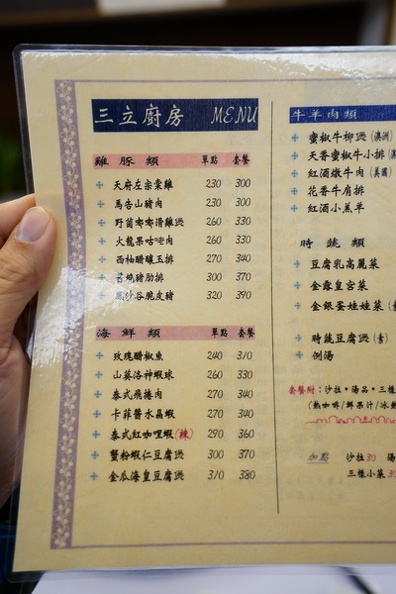 三立廚房 MENU
雞豚類 單點 套餐
天府左宗棠雞 230 300
馬告山豬肉 230 300
野菌嘟嘟滑雞煲 260 330
火龍果咕咾肉 260 330
西柚醋釀玉排 270 340
300 370
沙谷脆皮豬 320 390
海鮮類 單點 套餐
玫瑰醋椒魚 240 310
山葵洛神蝦球 260 330
泰式飛捲肉 270 340
卡菲醬水晶蝦 270 340
泰式紅咖哩蝦(辣) 290 360
蟹粉蝦仁豆腐煲 300 370
金瓜海皇豆腐煲 310 380
牛羊肉類
蜜椒牛柳煲(澳洲
天香蜜椒牛小排(
紅酒燉牛肉(美國
花香牛肩排
紅酒小羔羊
時蔬類
豆腐乳高麗菜
金露皇宮菜
金銀蛋娃娃菜(
時蔬豆腐煲(素)
例湯
套餐附:沙拉•湯品•三樣
(熱咖啡/鮮果汁/冰
加點 沙拉30 湯
三樣小菜30